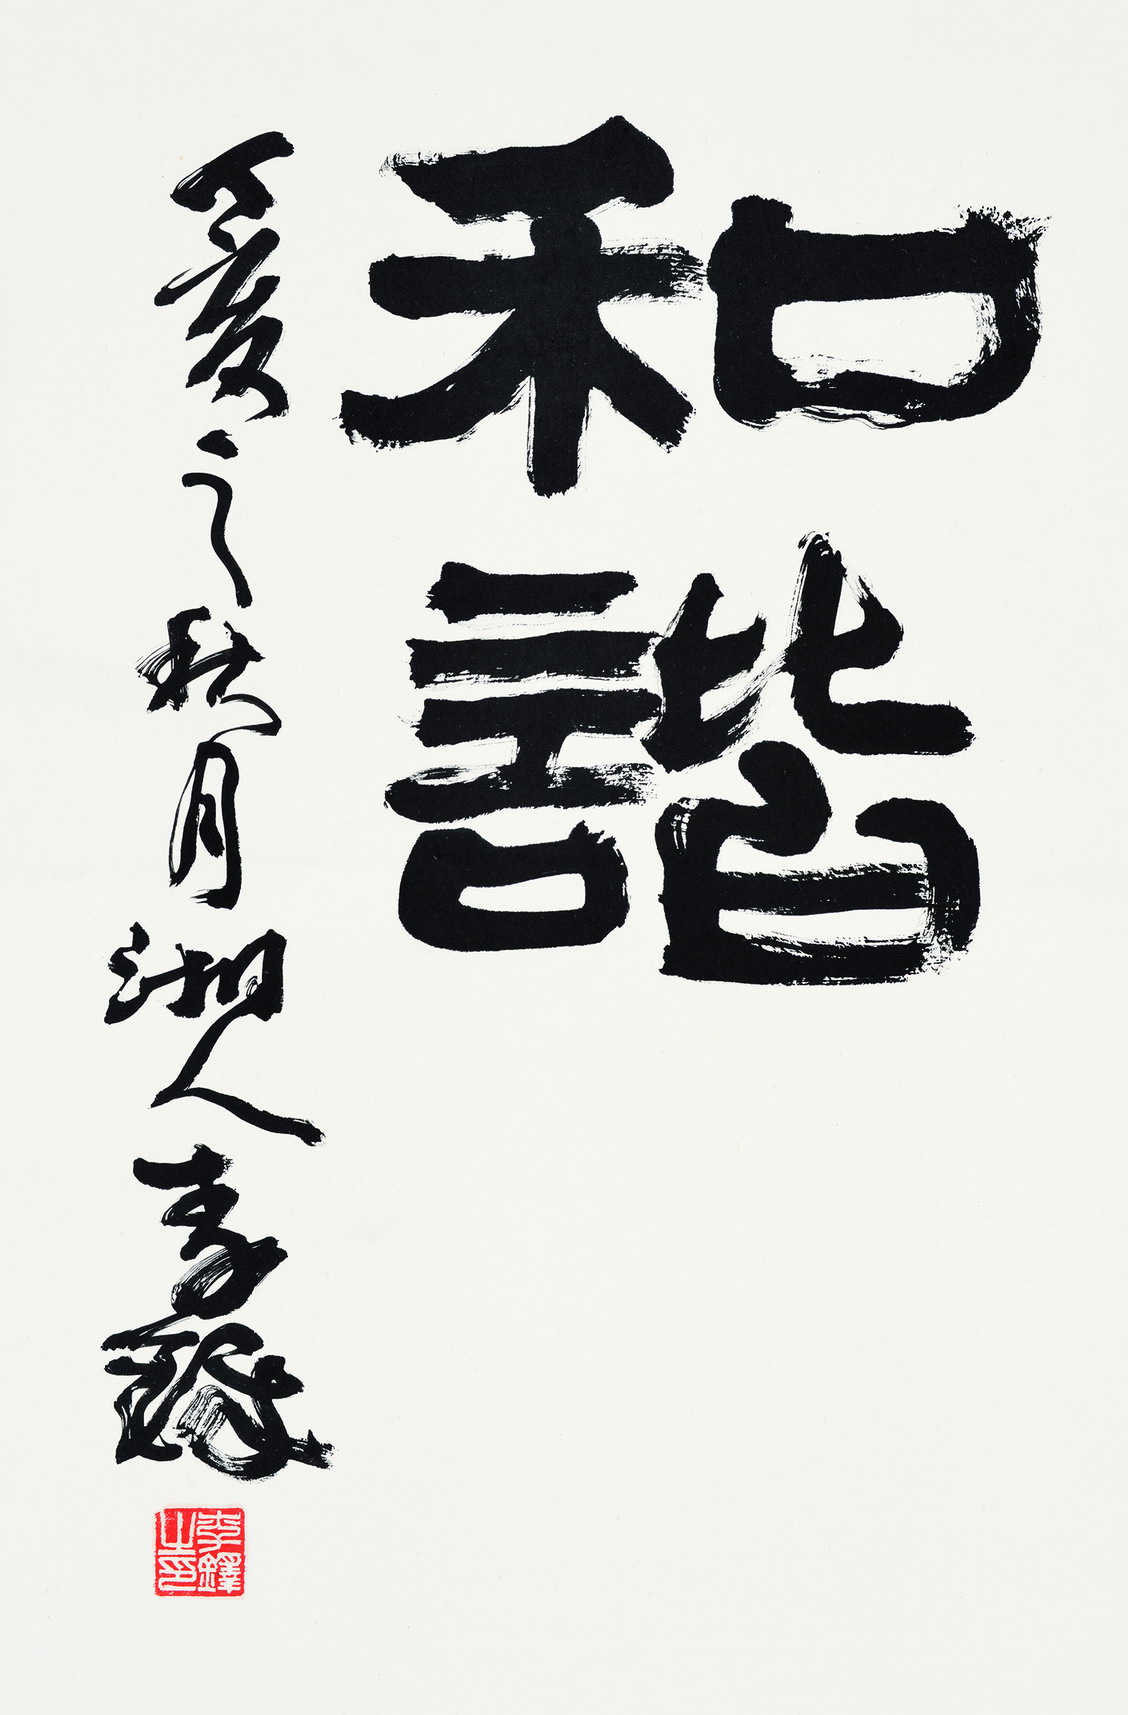 和諧
丁亥之秋月湘人李鐸
李鐸之印